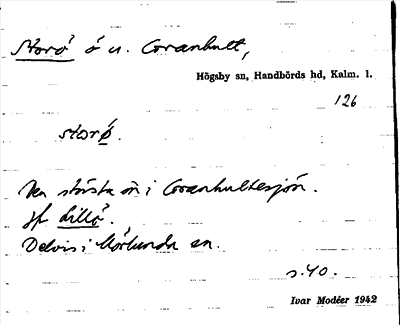 Storö ö u. Granhult,
Högsby sn, Handbörds hd, Kalm. l.
126
storö.
Den största ön i Granhultesjön.
Jf Lillö.
Delvis i Mörlunda sn.
s. 40.
Ivar Modéer 1942